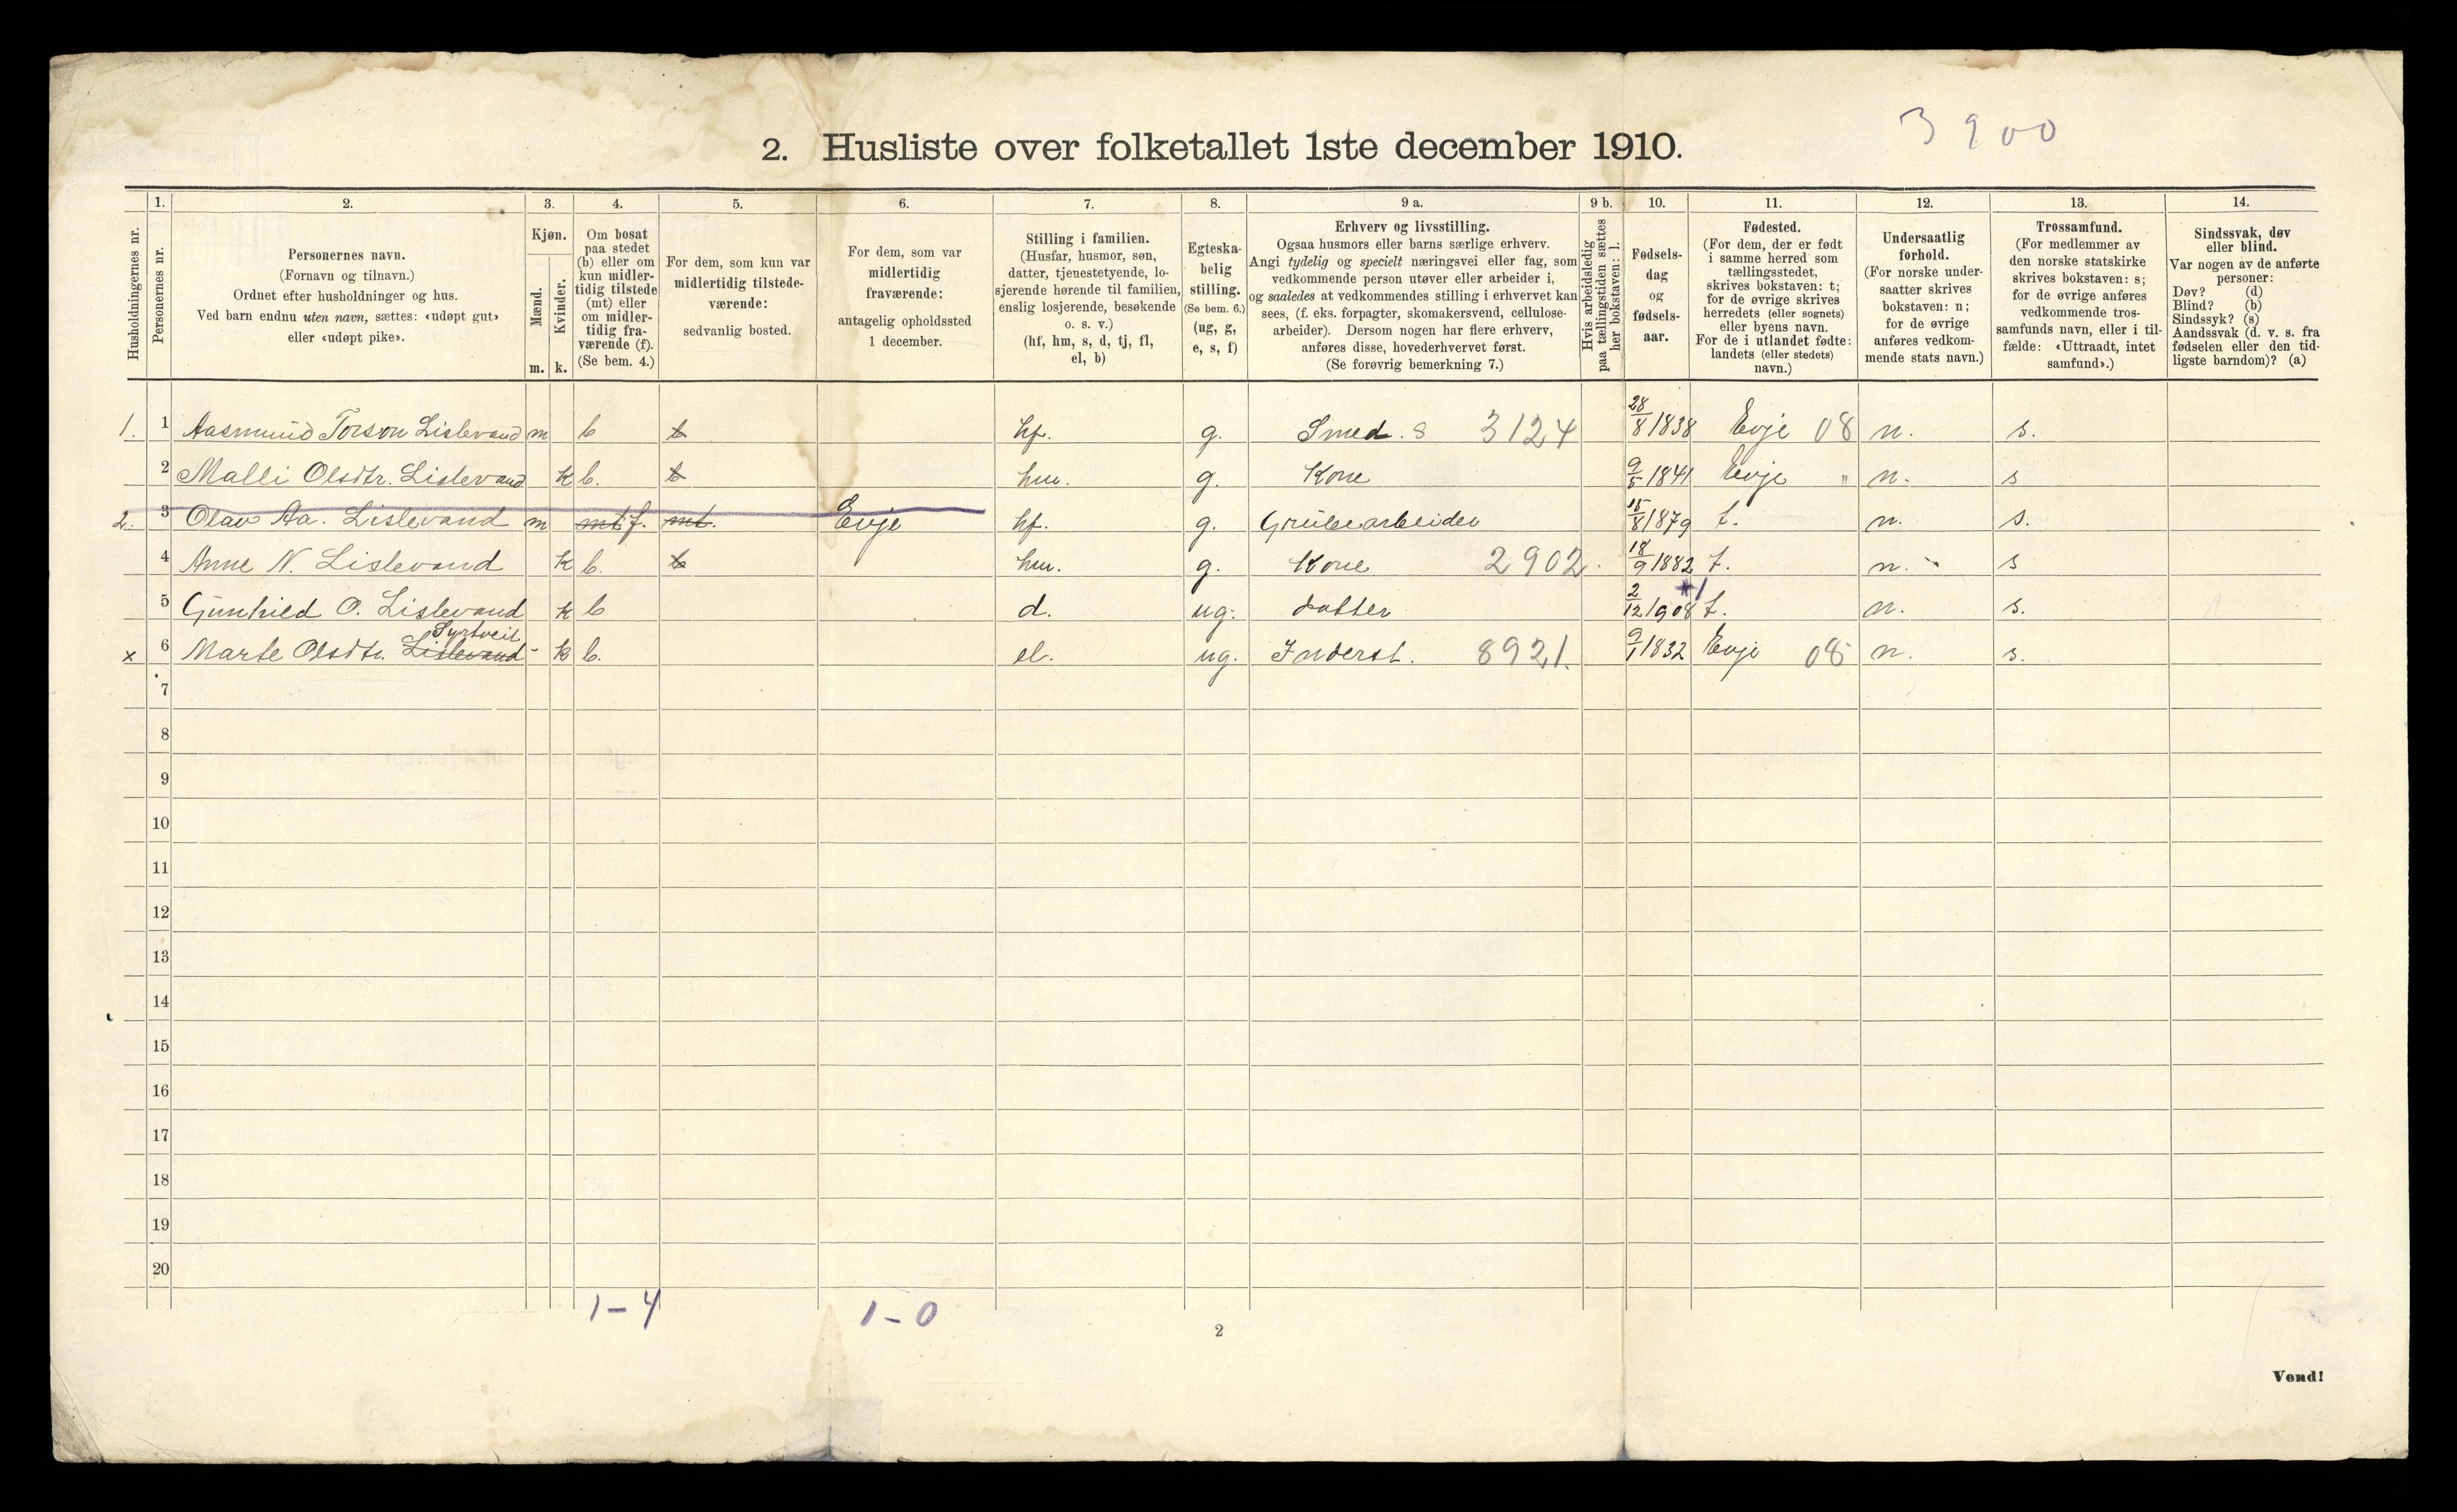 3900
2. Husliste over folketallet 1ste december 1910.
Husholdningernes nr.
1.
Personernes nr.
2.
Personernes navn.
(Fornavn og tilnavn.)
Ordnet efter husholdninger og hus.
Ved barn endnu uten navn, sættes: «udøpt gut»
eller «udøpt pike».
3.
Kjøn.
Mænd.
Kvinder.
m. k.
4.
Om bosat
paa stedet
(b) eller om
kun midler-
tidig tilstede
(mt) eller
om midler-
tidig fra-
værende (f).
(Se bem. 4.)
5.
For dem, som kun var
midlertidig tilstede-
værende:
sedvanlig bosted.
6.
For dem, som var
midlertidig
fraværende:
antagelig opholdssted
1 december.
7.
Stilling i familien.
(Husfar, husmor, søn,
datter, tjenestetyende, lo-
sjerende hørende til familien,
enslig losjerende, besøkende
o. s. v.)
(hf, hm, s, d, tj, fl,
el, b)
8.
Egteska-
belig
stilling.
(Se bem. 6.)
(ug, g,
e, s, f)
9 a.
Erhverv og livsstilling.
Ogsaa husmors eller barns særlige erhverv.
Angi tydelig og specielt næringsvei eller fag, som
vedkommende person utøver eller arbeider i,
og saaledes at vedkommendes stilling i erhvervet kan
sees, (f. eks. forpagter, skomakersvend, cellulose-
arbeider). Dersom nogen har flere erhverv,
anføres disse, hovederhvervet først.
(Se forøvrig bemerkning 7.)
9 b.
Hvis arbeidsledig
paa tællingstiden sættes
her bokstaven: l.
10.
Fødsels-
dag
og
fødsels-
aar.
11.
Fødested.
(For dem, der er født
i samme herred som
tællingsstedet,
skrives bokstaven: t;
for de øvrige skrives
herredets (eller sognets)
eller byens navn.
For de i utlandet fødte:
landets (eller stedets)
navn.)
12.
Undersaatlig
forhold.
(For norske under-
saatter skrives
bokstaven: n;
for de øvrige
anføres vedkom-
mende stats navn.)
13.
Trossamfund.
(For medlemmer av
den norske statskirke
skrives bokstaven: s;
for de øvrige anføres
vedkommende tros-
samfunds navn, eller i til-
fælde: «Uttraadt, intet
samfund».)
14.
Sindssvak, døv
eller blind.
Var nogen av de anførte
personer:
Døv? (d)
Blind? (b)
Sindssyk? (s)
Aandssvak (d. v. s. fra
fødselen eller den tid-
ligste barndom)? (a)
1. 1 Aasmund Torson Lislevand m b b hf. g. Smed. s 3124 28/8 1838 Evje 08 n. s.
2 Malli Olsdtr. Lislevand k b. b hm. g. Kone 9/5 1841 Evje " n. s
2. 3 Olav Aa. Lislevand m mt f. mt. Evje hf. g. Grubearbeider 15/8 1879 t. n. s.
4 Anne N. Lislevand k b. b hm. g. Kone 2902. 18/9 1882 t. n. s
5 Gunhild O. Lislevand k b d. ug. datter 2/12 1908 t. n. s.
Syrtveit
x 6 Marte Olsdtr. Lislevand k b. el. ug. Inderst. 8921. 9/1 1832 Evje 08 n. s.
7
8
9
10
11
12
13
14
15
16
17
18
19
20
1 – 4 1 – 0
2
Vend!